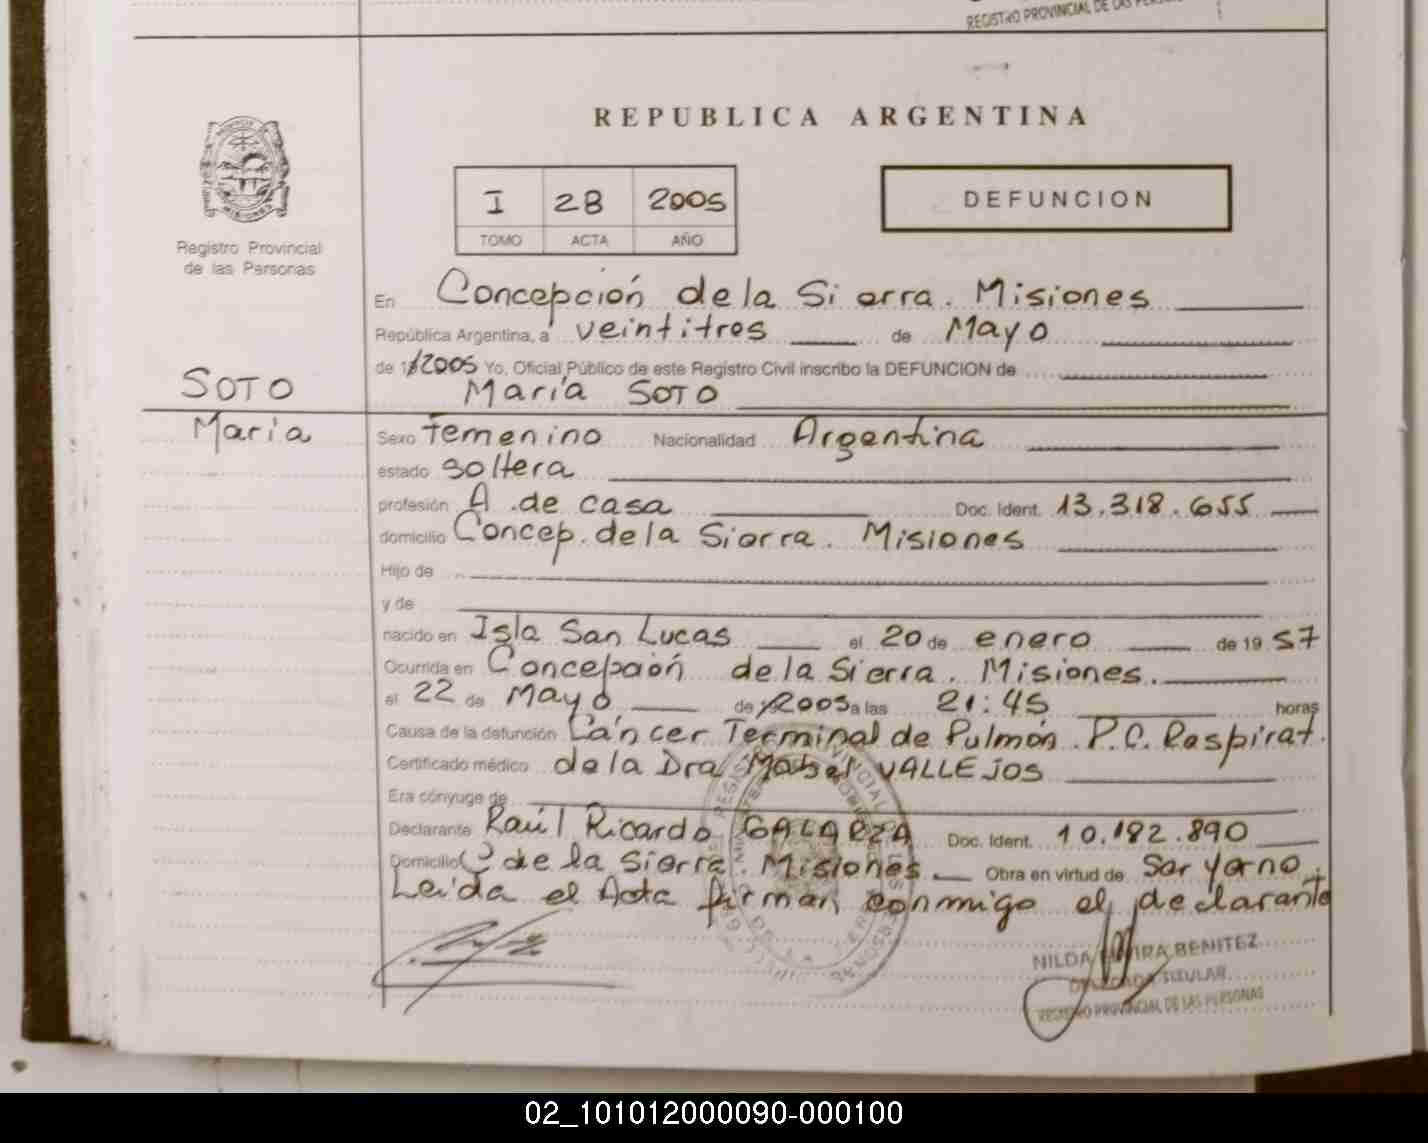 REGISTRO PROVINCIAL DE LAS
REPUBLICA ARGENTINA
MISIONES
Registro Provincial
de las Personas
I 28 2005
TOMO ACTA AÑO
DEFUNCION
En Concepción de la Sierra. Misiones
República Argentina, a veintitres de Mayo
de 2005 Yo, Oficial Público de este Registro Civil inscribo la DEFUNCION de
SOTO
María SOTO
María
Sexo Femenino Nacionalidad Argentina
estado soltera
profesión A. de casa Doc. Ident. 13.318.655
domicilio Concep. de la Sierra. Misiones
Hijo de
y de
nacido en Isla San Lucas el 20 de enero de 19 57
Ocurrida en Concepción de la Sierra. Misiones.
el 22 de Mayo de 2005 a las 21:45 horas
Causa de la defunción Cáncer Terminal de Pulmón. P.C. Respirat.
Certificado médico de la Dra Mabel VALLEJOS
Era cónyuge de
Declarante Raúl Ricardo GALARZA Doc. Ident. 10.182.890
Domicilio C. de la Sierra. Misiones Obra en virtud de Ser Yerno.
Leída el Acta firman conmigo el declarante
NILDA BENITEZ
TITULAR
REGISTRO PROVINCIAL DE LAS PERSONAS
02_101012000090-000100